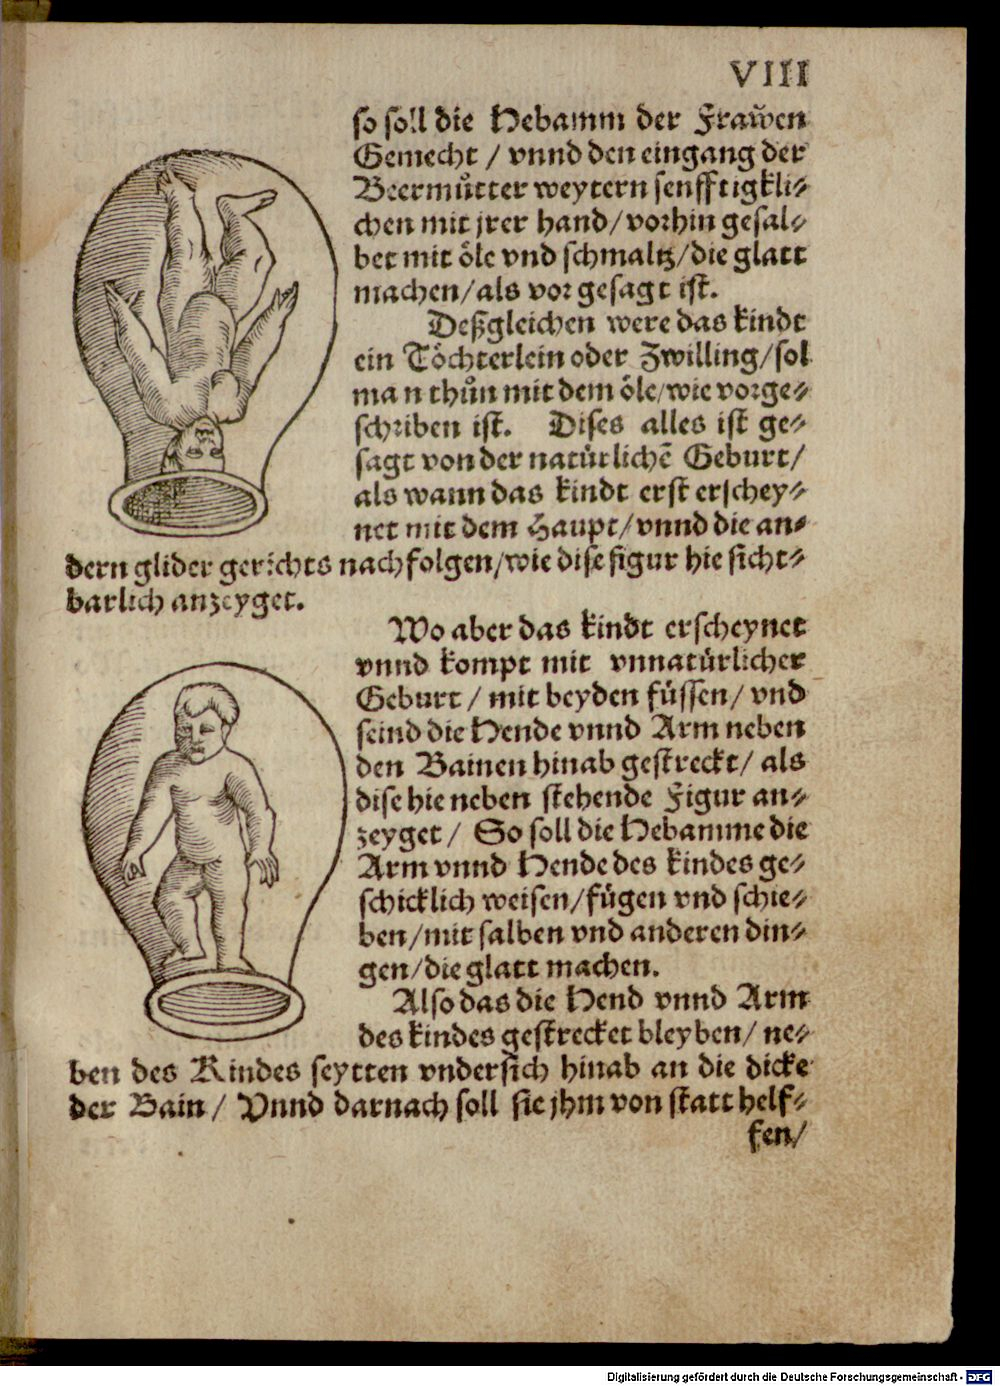 VIII
so soll die Hebamm der Frawen
Gemecht / vnnd den eingang der
Beermůtter weytern senfftigkli⸗
chen mit jrer hand/ vorhin gesal⸗
bet mit öle vnd schmaltz/ die glatt
machen/ als vor gesagt ist.
Deßgleichen were das kindt
ein Töchterlein oder Zwilling/ sol
man thůn mit dem öle/ wie vorge⸗
schriben ist. Dises alles ist ge⸗
sagt von der natürlichẽ Geburt/
als wann das kindt erst erschey⸗
net mit dem Haupt/ vnnd die an⸗
dern glider gerichts nachfolgen/ wie dise figur hie sicht⸗
barlich anzeyget.
Wo aber das kindt erscheynet
vnnd kompt mit vnnatürlicher
Geburt / mit beyden füssen/ vnd
seind die Hende vnnd Arm neben
den Bainen hinab gestreckt/ als
dise hie neben stehende Figur an⸗
zeyget / So soll die Hebamme die
Arm vnnd Hende des kindes ge⸗
schicklich weisen/ fügen vnd schie⸗
ben/ mit salben vnd anderen din⸗
gen/ die glatt machen.
Also das die Hend vnnd Arm
des kindes gestrecket bleyben/ ne⸗
ben des Kindes seytten vndersich hinab an die dicke
der Bain / Vnnd darnach soll sie jhm von statt helf⸗
fen/
Digitalisierung gefördert durch die Deutsche Forschungsgemeinschaft - DFG